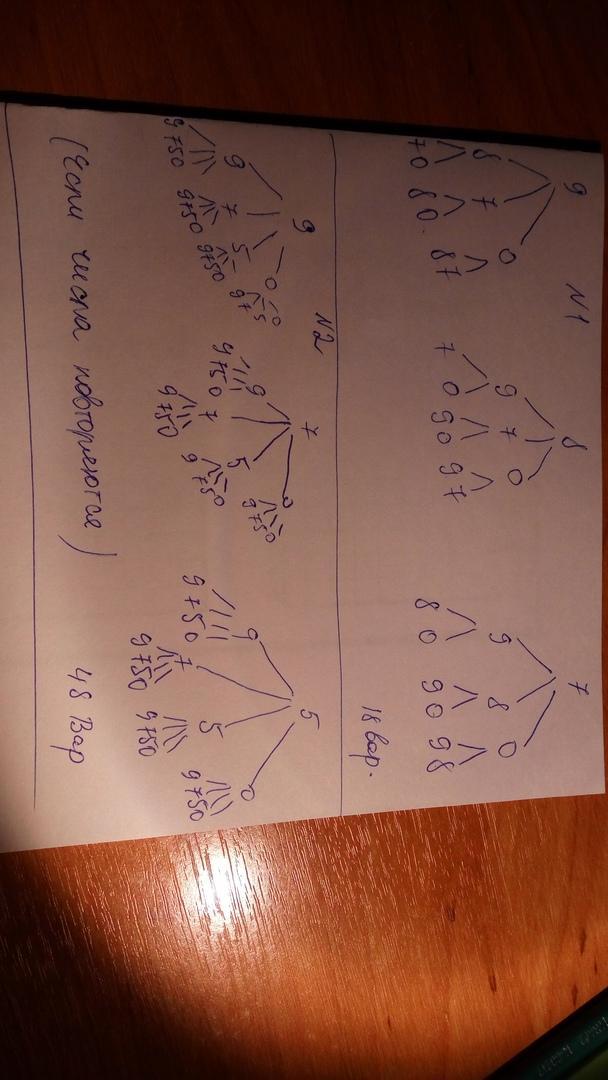 N1
9 8 7
8 7 0 9 7 0 9 8 0
70 80 87 70 90 97 80 90 98
18 вар.
N2
9 7 5
9 7 5 0 9 7 5 0 9 7 5 0
9750 9750 9750 9750 9750 9750 9750 9750 9750 9750 9750 9750
(Если числа повторяются) 48 Вар